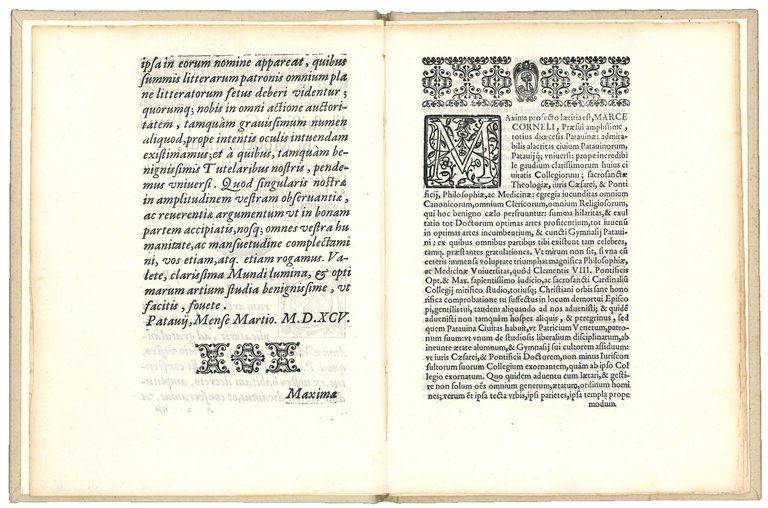 ipsa in eorum nomine appareat, quibus
summis litterarum patronis omnium pla
ne litteratorum fetus deberi videntur;
quorumq; nobis in omni actione auctori-
tatem, tamquàm grauissimum numen
aliquod, prope intentis oculis intuendam
existimamus; et à quibus, tamquàm be-
nignissimis Tutelaribus nostris, pende-
mus vniuersi. Quod singularis nostræ
in amplitudinem vestram obseruantiæ,
ac reuerentiæ argumentum vt in bonam
partem accipiatis, nosq; omnes vestra hu
manitate, ac mansuetudine complectami
ni, vos etiam, atq. etiam rogamus. Va-
lete, clarissima Mundi lumina, & opti
marum artium studia benignissime, vt
facitis, fouete.
Patauij, Mense Martio. M.D.XCV.
Maxima
MAxima profecto lætitia est, MARCE
CORNELI, Præsul amplissime,
totius diœcesis Patauinæ: admira-
bilis alacritas ciuium Patauinorum,
Patauijq; vniuersi: prope incredibi
le gaudium clarissimorum huius ci
uitatis Collegiorum; sacrosanctæ
Theologiæ, iuris Cæsarei, & Ponti
ficij, Philosophiæ, ac Medicinæ: egregia iucunditas omnium
Canonicorum, omnium Clericorum, omnium Religiosorum,
qui hoc benigno cælo perfruuntur: summa hilaritas, & exul
tatio tot Doctorum optimas artes profitentium, tot iuuenũ
in optimas artes incumbentium, & cuncti Gymnasij Pataui-
ni; ex quibus omnibus partibus tibi existunt tam celebres,
tamq. præstantes gratulationes. Vt mirum non sit, si vna cũ
ceteris immensa voluptate triumphat magnifica Philosophiæ,
ac Medicinæ Vniuersitas, quòd Clementis VIII. Pontificis
Opt. & Max. sapientissimo iudicio, ac sacrosancti Cardinaliũ
Collegij mirifico studio, totiusq; Christiani orbis sane hono
rifica comprobatione tu suffectus in locum demortui Episco
pi, gentilis tui, tandem aliquando ad nos aduenisti; & quidẽ
aduenisti non tamquàm hospes aliquis, & peregrinus, sed
quem Patauina Ciuitas habuit, vt Patricium Venetum, patro-
num suum: vt vnum de studiosis liberalium disciplinarum, ab
ineunte ætate alumnum, & Gymnasij sui cultorem assiduum:
vt iuris Cæsarei, & Pontificii Doctorem, non minus Iuriscon
sultorum suorum Collegium exornantem, quàm ab ipso Col
legio exornatum. Quo quidem aduentu cum lætari, & gesti-
re non solum oẽs omnium generum, ætatum, ordinum homi
nes; verum ẽt ipsa tecta vrbis, ipsi parietes, ipsa templa prope
modum